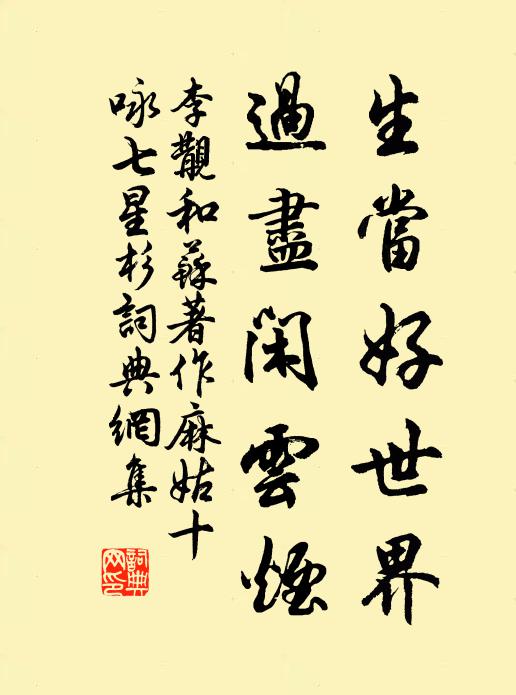 生當好世界
過盡閑雲煙
李覯和蘇著作麻姑十
咏七星杉詞典網集
詞典網印